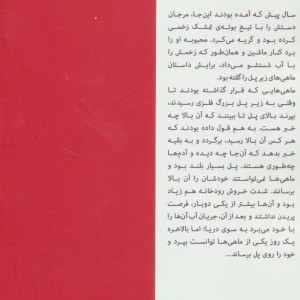 سال پیش که آمده بودند این‌جا، مرجان
دستش را با تیغ بوته‌ی تمشک زخمی
کرده بود و گریه می‌کرد. محبوبه او را
برد کنار ماشین و همان‌طور که زخمش را
با آب شستشو می‌داد، برایش داستان
ماهی‌های زیر پل را گفته بود.
ماهی‌هایی که قرار گذاشته بودند تا
وقتی به زیر پل بزرگ فلزی رسیدند،
بپرند بالای پل تا ببینند که آن بالا چه
خبر هست. به هم قول داده بودند که
هر کس آن بالا رسید، برگردد و به بقیه
خبر بدهد که آن‌جا چه دیده و آدم‌ها
چه‌طوری هستند. پل بسیار بلند بود و
ماهی‌ها نمی‌توانستند خودشان را آن بالا
برسانند. شدت خروش رودخانه هم زیاد
بود و آن‌ها بیشتر از یکی دوبار، فرصت
پریدن نداشتند و بعد از آن، جریان آب آن‌ها را
با خود می‌برد به سوی دریا؛ اما بالاخره
یک روز یکی از ماهی‌ها توانست بپرد و
خود را روی پل برساند...